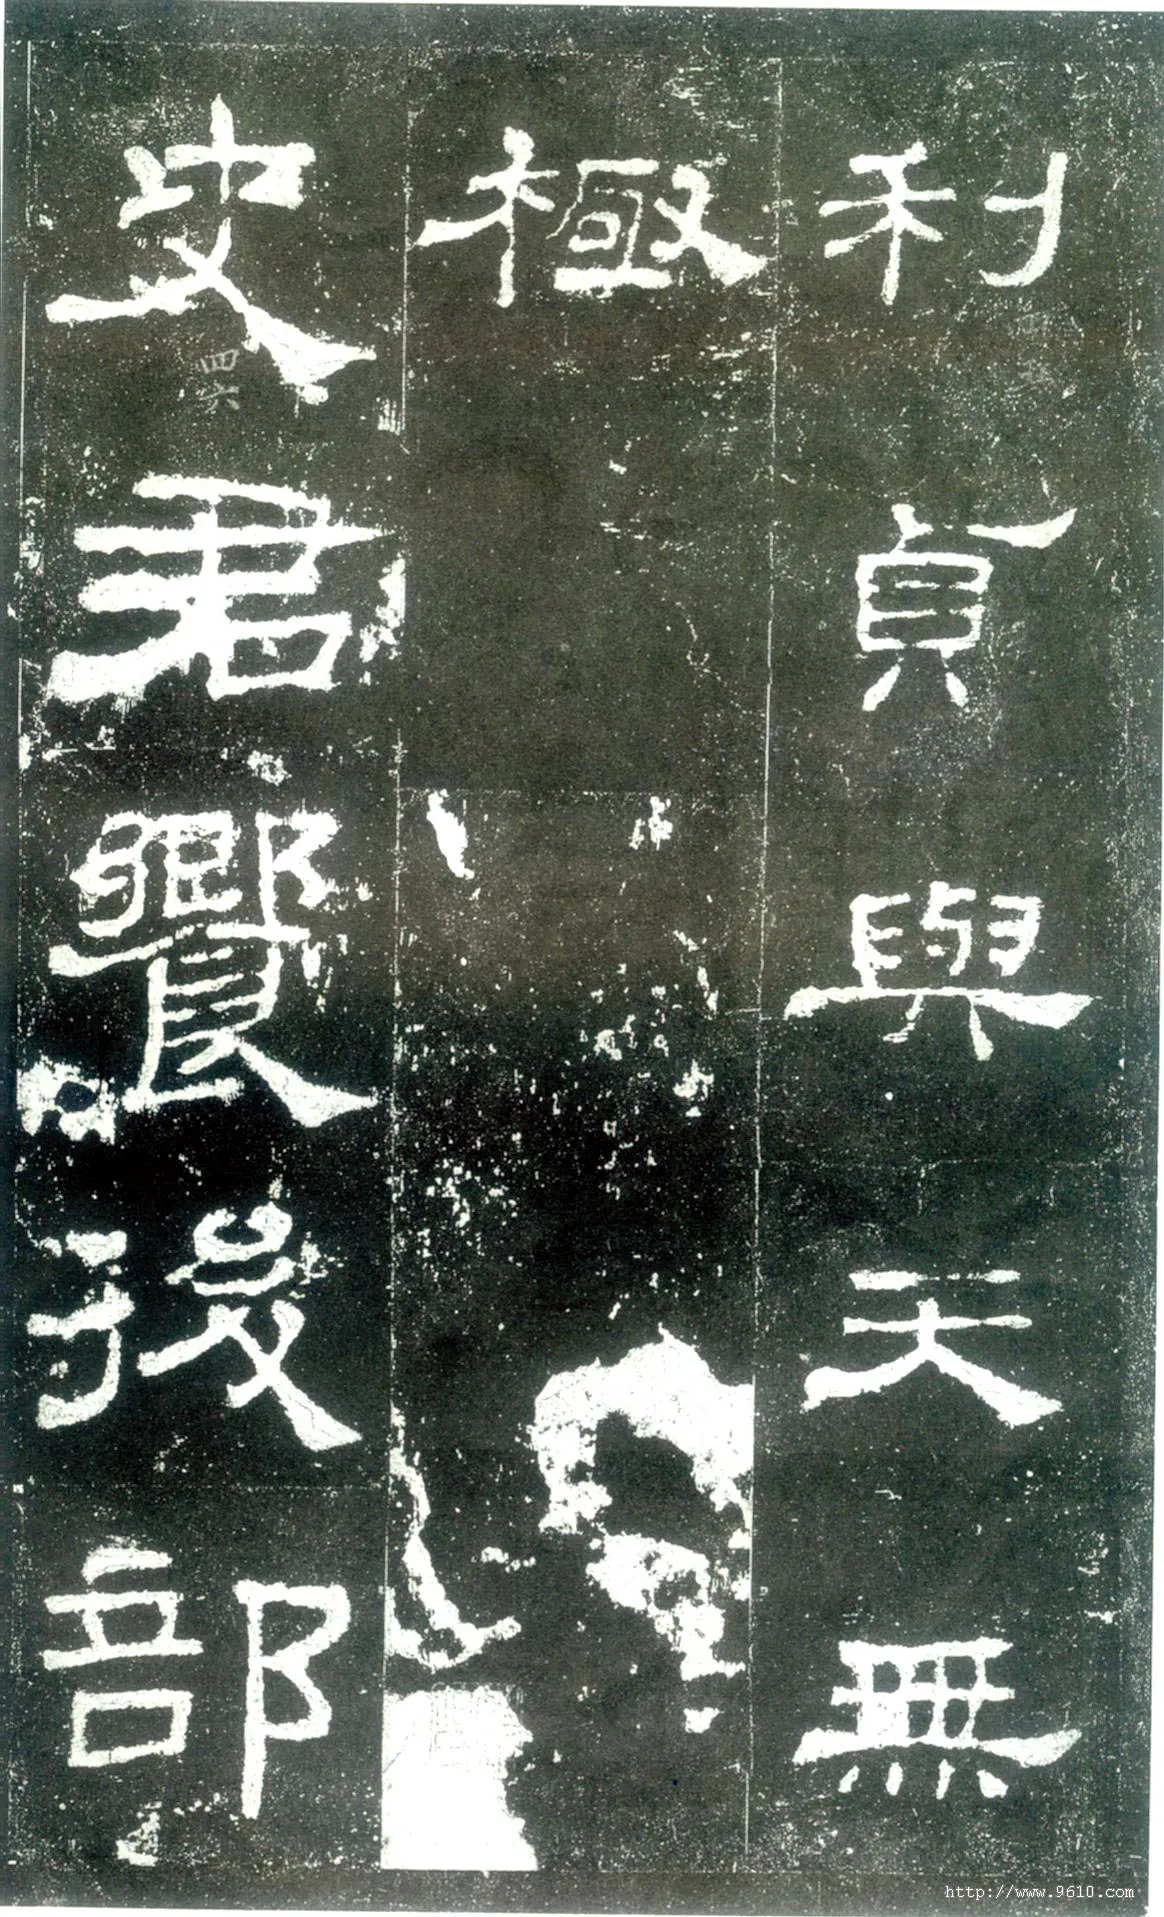 利貞與天無
極
史君饗後部
四六
http://www.9610.com